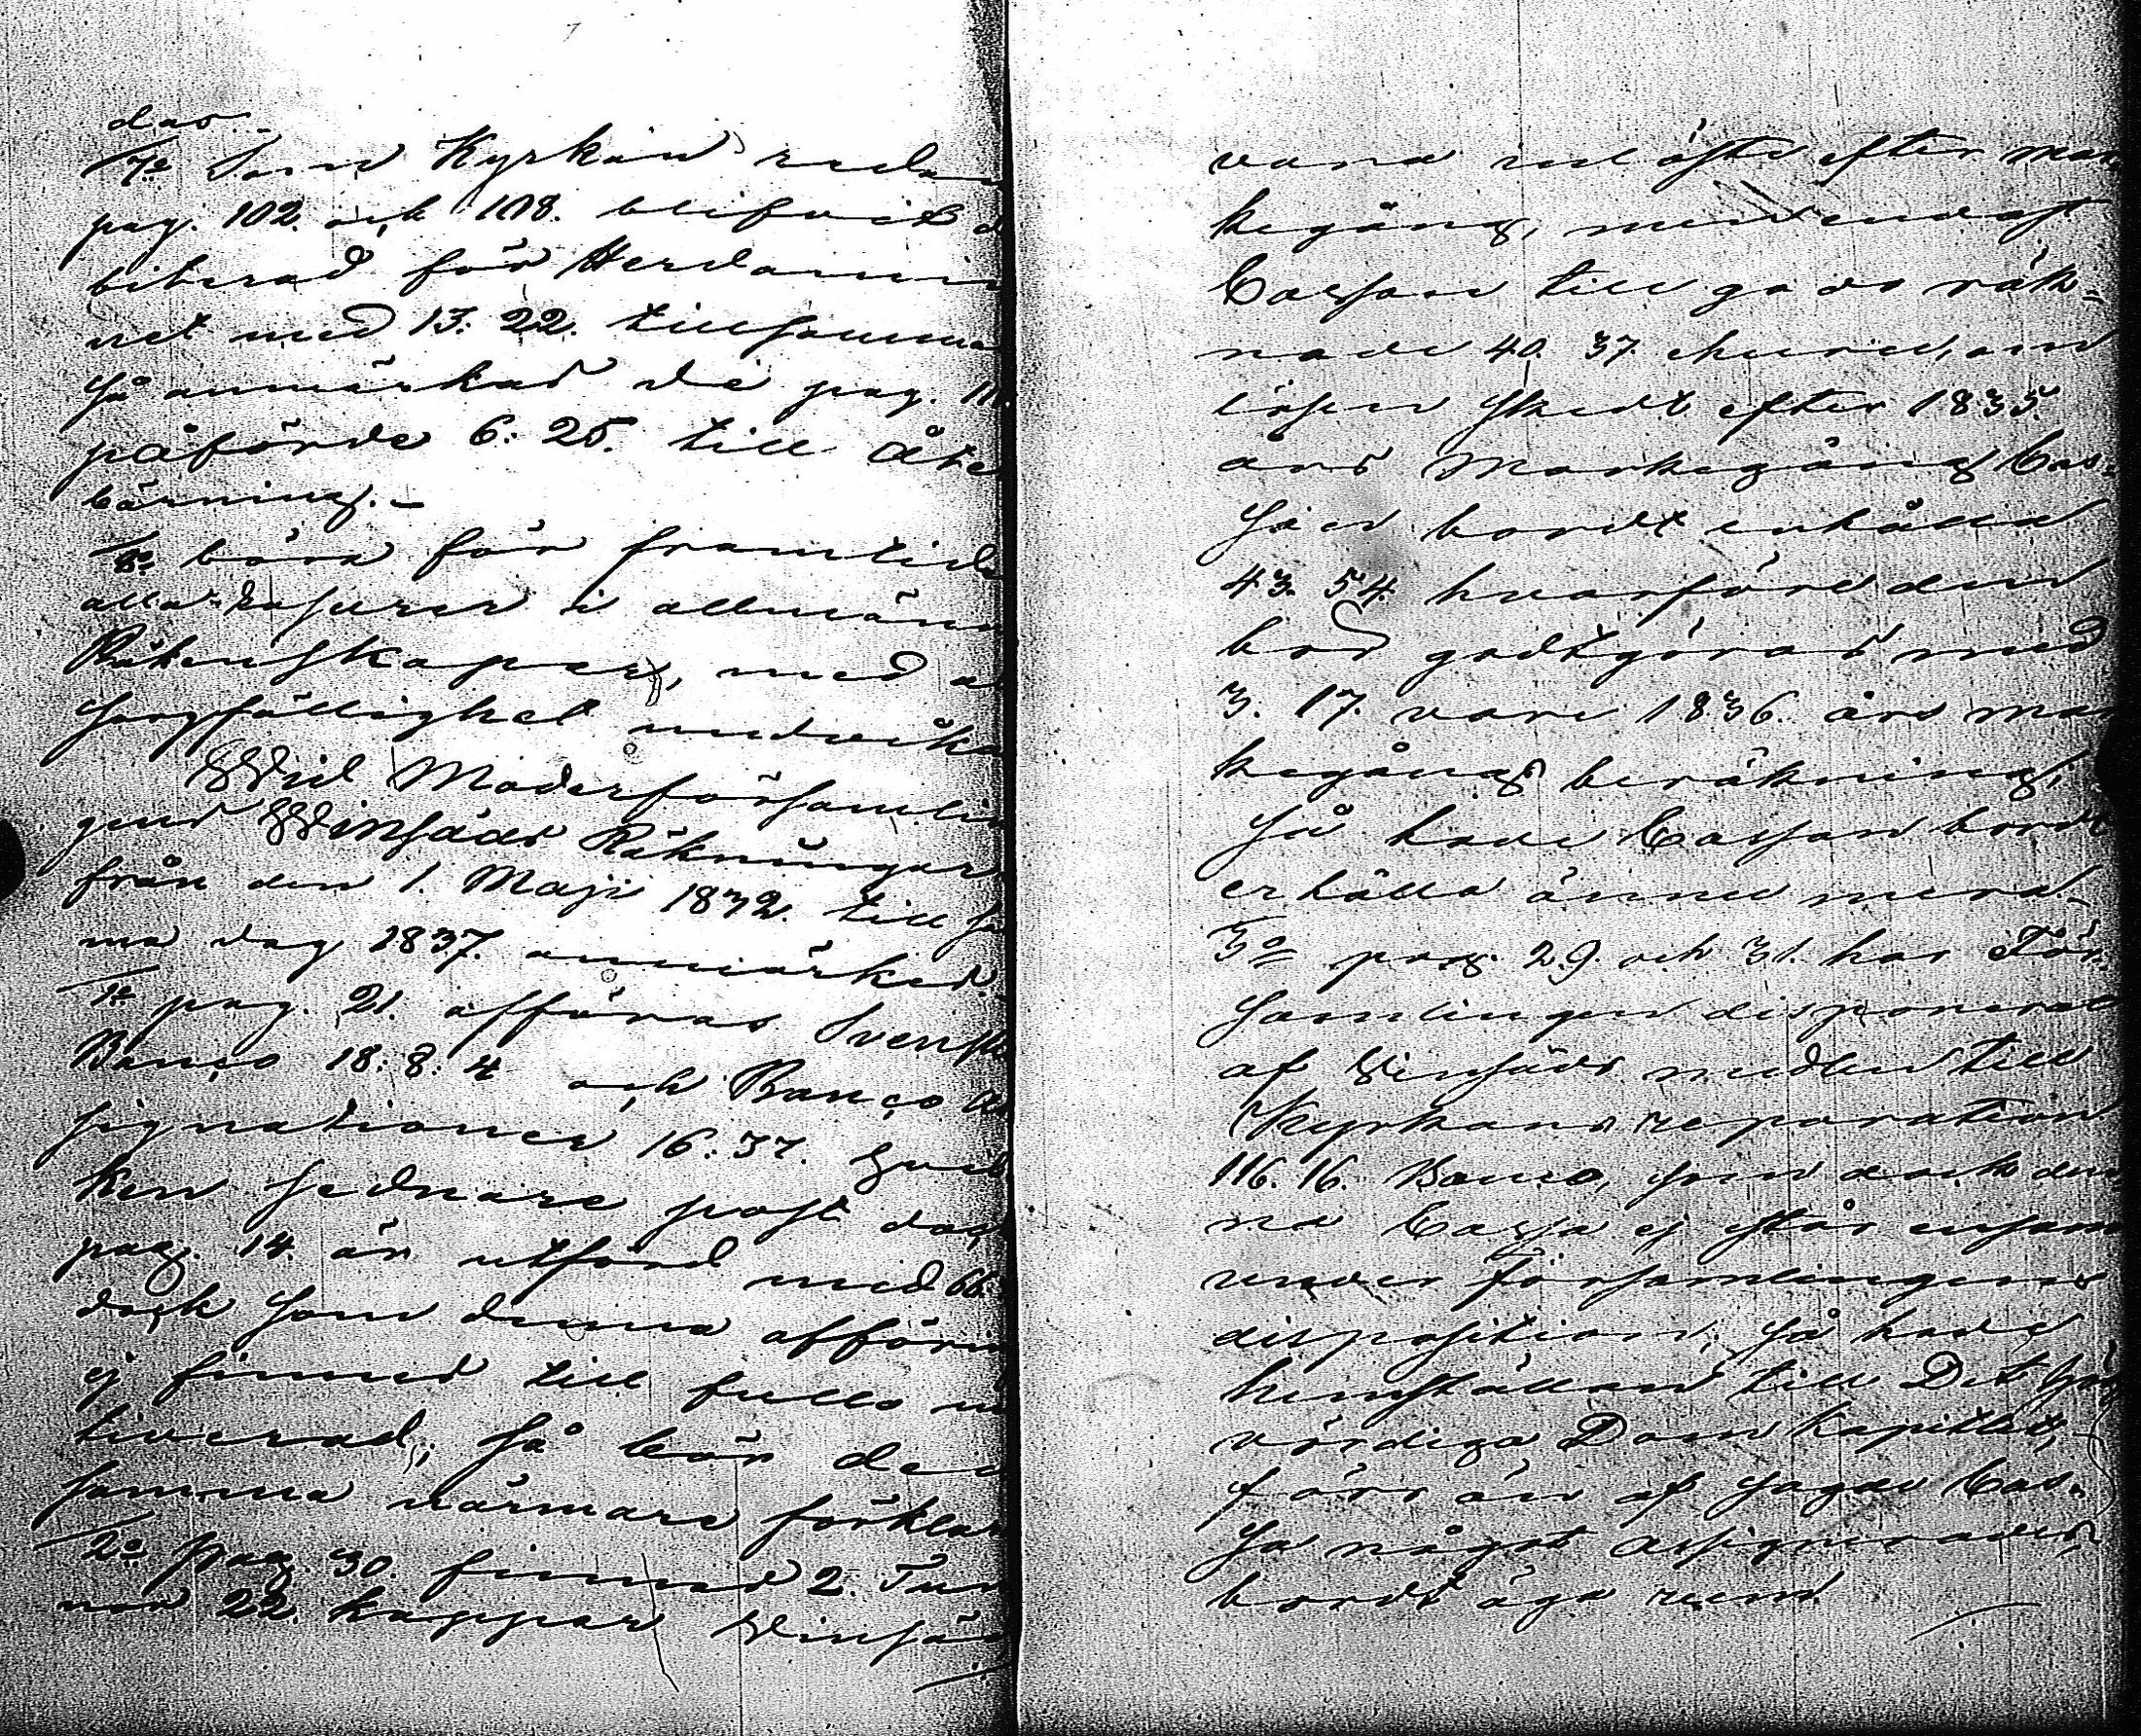 das.
7o Som Kyrkan redan
pag. 102. och 108. blifvit d
biterad för Herdamin
net med 13: 22. tillsamma
så anmärkas de pag. 11
påförde 6: 25. till åter
bärning. –
8o böra för framtide
alla rasurer i allmänn
Räkenskaper, med a
sorgfällighet undvika
Wid Moderförsamlin
gens Winsäds Räkningar
från den 1. Maji 1832. till sa
ma dag 1837. anmärkes.
1o pag. 21. afföras Svensk
Banco 18: 8: 4 och Banco As
signationer 16: 37. hvil
ken sednare post dock
pag. 14. är utförd med 66.
dock som denna afförin
ej finnes till fullo mo
tiverad, så bör den
samma närmare förklar
2o pag. 30. finnes 2. Tun
nor 22. kappar Vinsäd
vara inlöste efter mar
kegång, men endast
Cassan till godo räk-
nade 40. 37. ehuru, om
lösen skedt efter 1835.
års Markegång Cas-
san bordt erhålla
43. 54. hvarföre den
bör godtgöras med
3. 17. vore 1836. års mar
kegångs beräkning,
så hade Cassan bordt
erhålla ännu mera.
3o pag. 29. och 31. har För-
samlingen disponerat
af Vinsäds medlen till
Kyrkans reparation
116. 16. Banco, som dock den
na Cassa ej står ensam
under församlingens
disposition, så hade
hemställan till Det Hög
vördiga Dom Kapitlet,
förr än af sagde Cas-
sa något assignerades,
bordt äga rum.